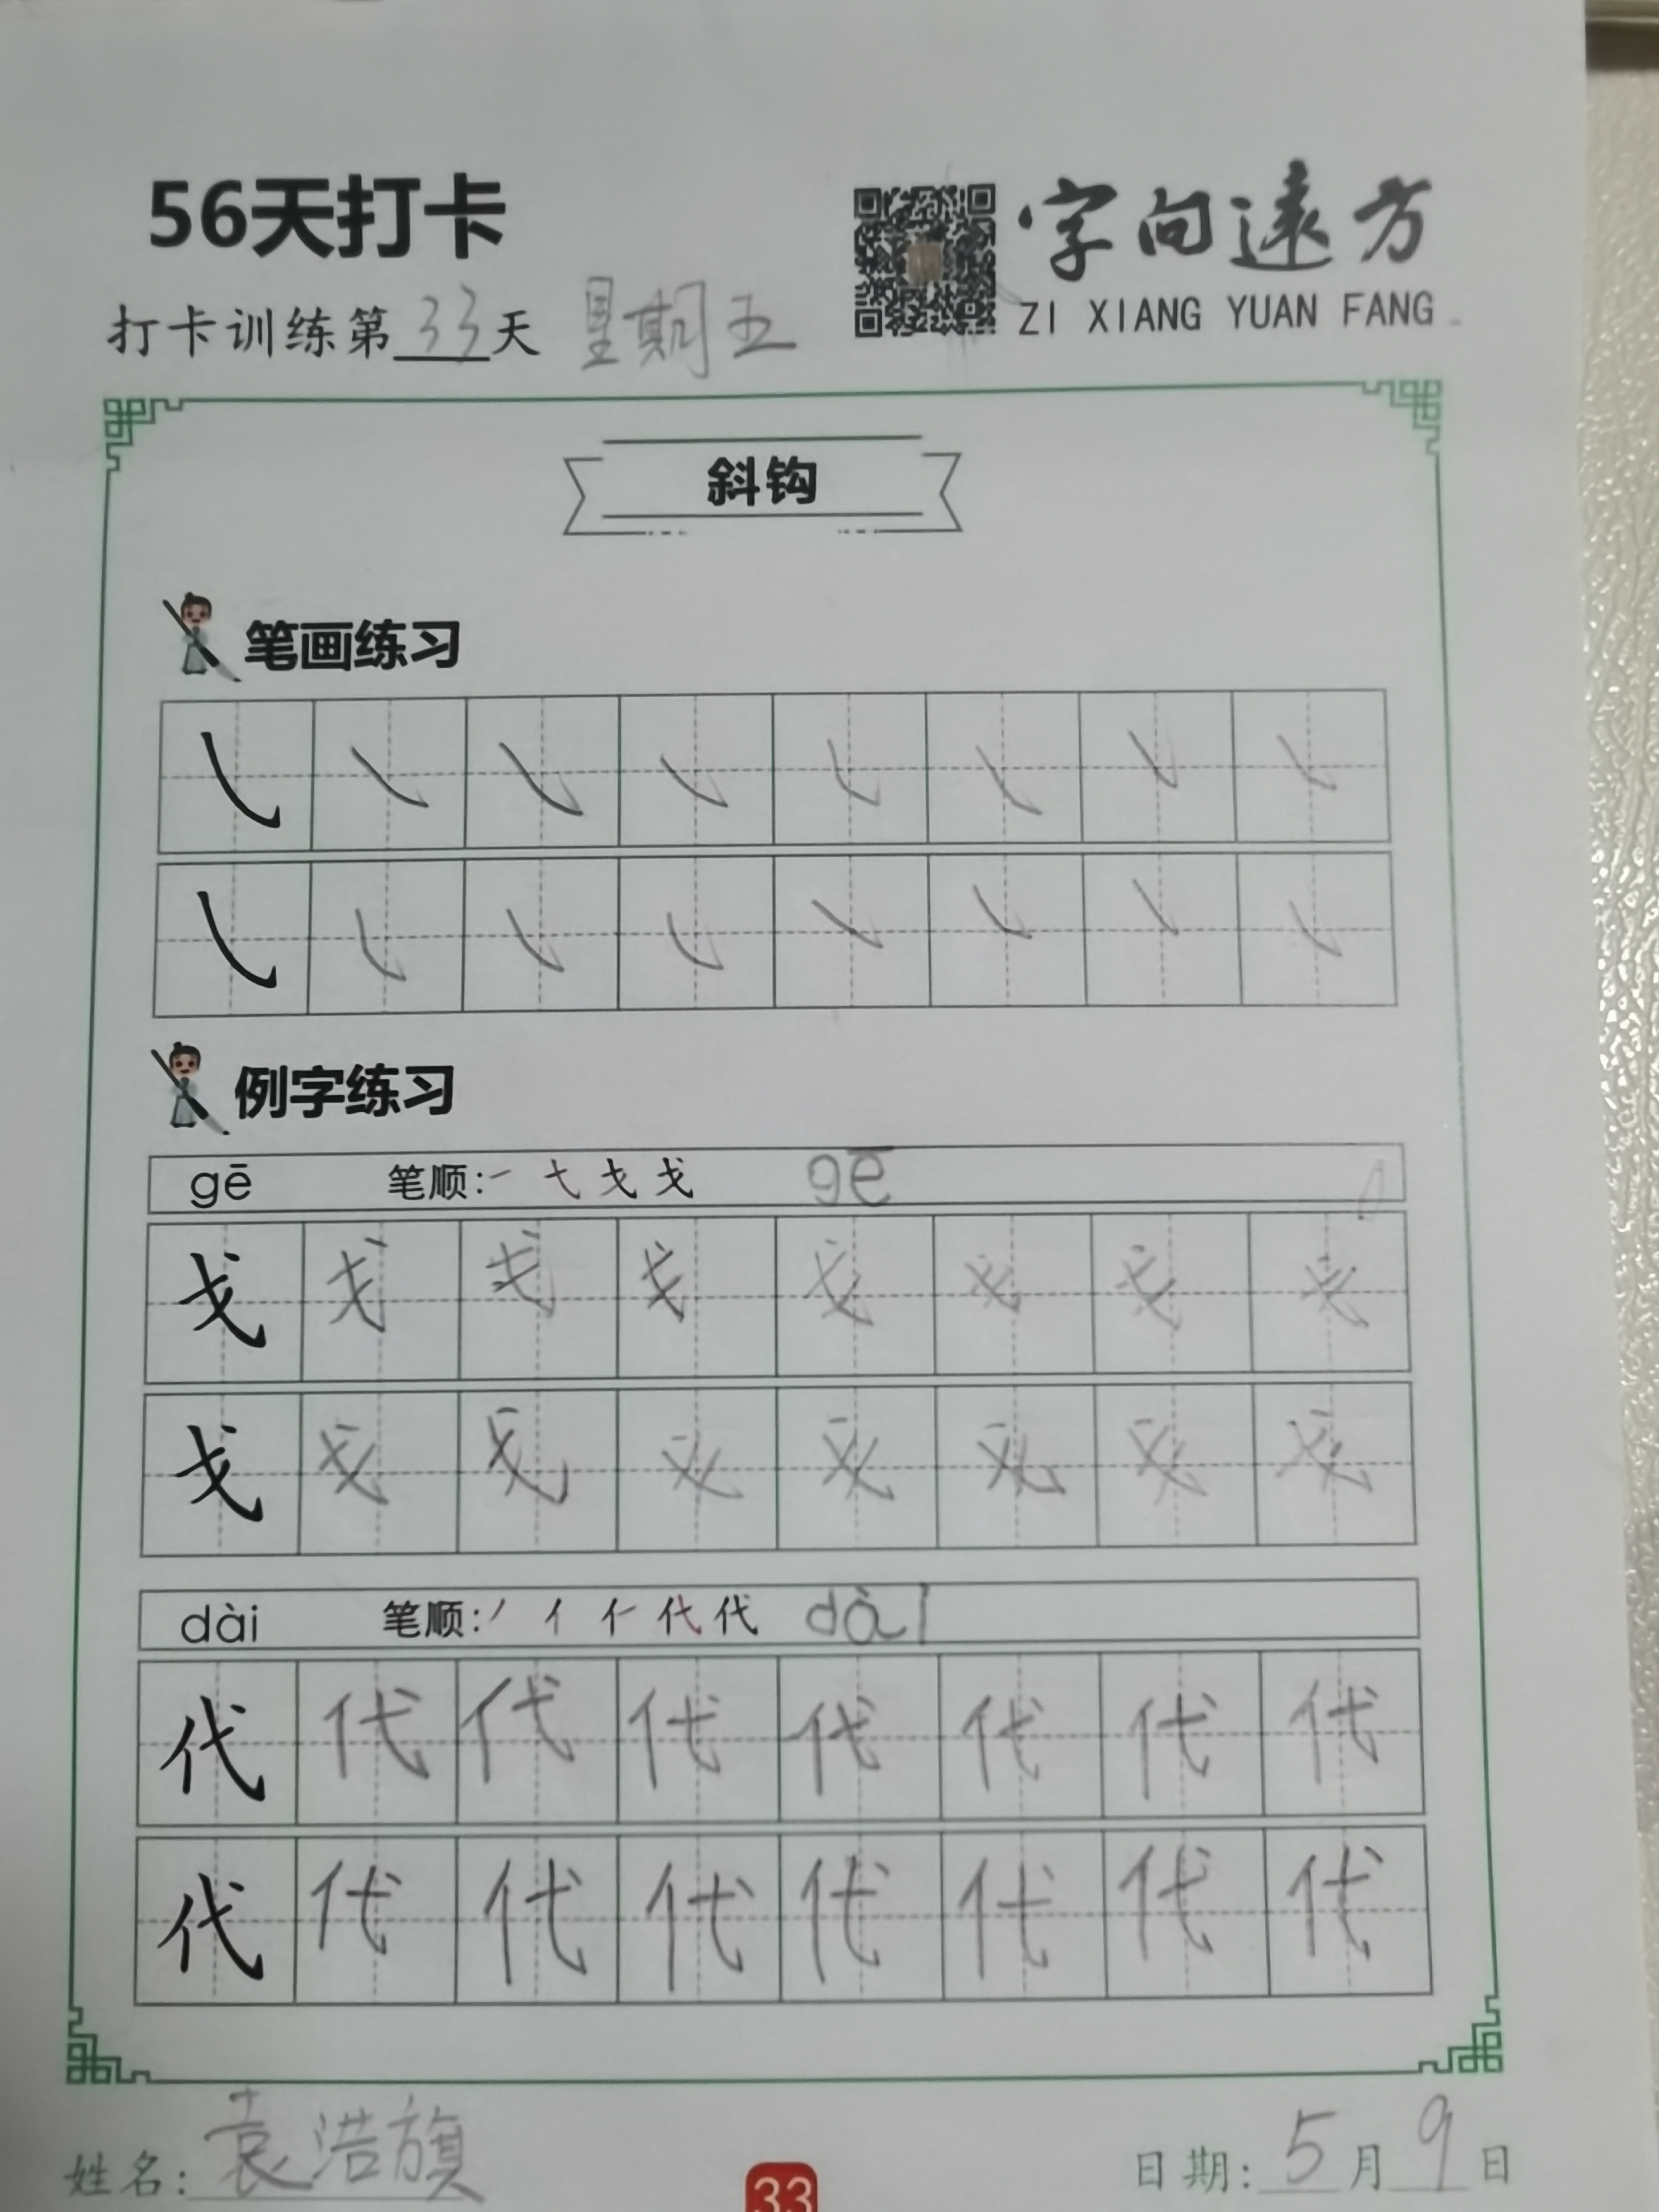 56天打卡
字向遠方
ZI XIANG YUAN FANG
打卡训练第33天 星期五
斜钩
笔画练习
㇂
㇂
例字练习
gē 笔顺: gē
戈 戈 戈 戈 戈 戈 戈 戈
戈 戈 戈 戈 戈 戈 戈 戈
dài 笔顺: dài
代 代 代 代 代 代 代 代
代 代 代 代 代 代 代 代
姓名: 袁浩旗
33
日期: 5月9日